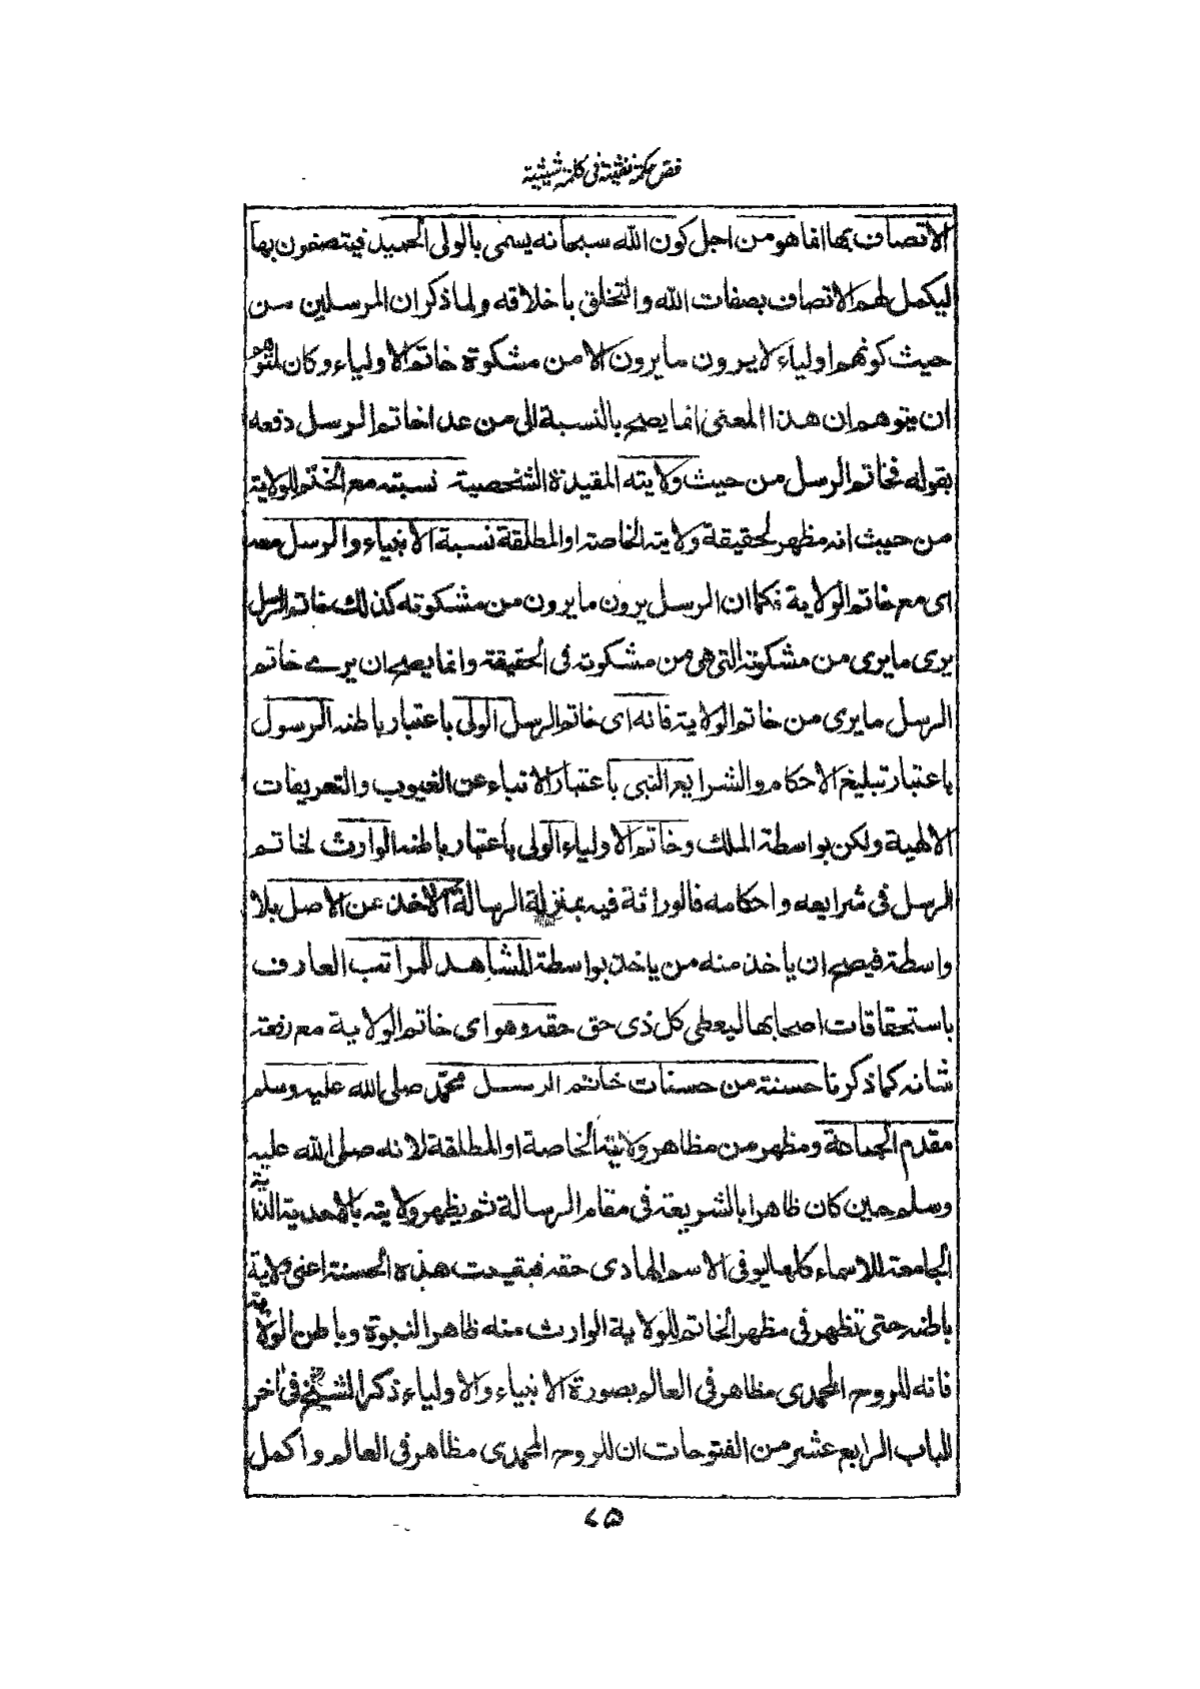 فص حكمة نفثية في كلمة شيثية
الاتصاف بها انما هو من اجل كون الله سبحانه يسمى بالولى الحميد فيتصفون بها
ليكمل لهم الاتصاف بصفات الله والتخلق باخلاقه ولما ذكر ان المرسلين من
حيث كونهم اولياء لا يرون ما يرون الا من مشكوة خاتم الاولياء وكان لمتوهم
ان يتوهم ان هذا المعنى انما يصح بالنسبة الى من عدا خاتم الرسل دفعه
بقوله فخاتم الرسل من حيث ولايته المقيدة الشخصية نسبته مع الختم للولاية
من حيث انه مظهر لحقيقة ولايته الخاصة او المطلقة نسبة الانبياء والرسل معه
اى مع خاتم الولاية فكما ان الرسل يرون ما يرون من مشكوته كذلك خاتم الرسل
يرى ما يرى من مشكوته التى هى من مشكوته فى الحقيقة وانما يصح ان يرے خاتم
الرسل ما يرى من خاتم الولاية فانه اى خاتم الرسل الولى باعتبار باطنه الرسول
باعتبار تبليغ الاحكام والشرايع النبى باعتبار الانباء عن الغيوب والتعريفات
الالهية ولكن بواسطة الملك وخاتم الاولياء الولى باعتبار باطنه الوارث لخاتم
الرسل فى شرايعه واحكامه فالوراثة فيه بمنزلة الرسالة الآخذ عن الاصل بلا
واسطة فيصح ان ياخذ منه من ياخذ بواسطة المشاهد للمراتب العارف
باستحقاقات اصحابها ليعطى كل ذى حق حقه وهو اى خاتم الولاية مع رفعة
شانه كما ذكرنا حسنة من حسنات خاتم الرسل محمد صلى الله عليه وسلم
مقدم الجماعة ومظهر من مظاهر ولايته الخاصة او المطلقة لانه صلى الله عليه
وسلم حين كان ظاهرا بالشريعة فى مقام الرسالة ثم يظهر ولايته بالاحدية الذاتية
الجامعة للاسماء كلها ليوفى الاسم الهادى حقه فبقيت هذه الحسنة اعنى ولاية
باطنه حتى تظهر فى مظهر الخاتم للولاية الوارث منه ظاهر النبوة وباطن الولاية
فانه للروح المحمدى مظاهر فى العالم بصورة الانبياء والاولياء ذكر الشيخ فى آخر
الباب الرابع عشر من الفتوحات ان للروح المحمدى مظاهر فى العالم واكمل